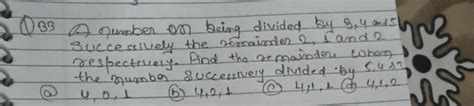 Q 33 A number on being divided by 3, 4 and 5
successively the remainder 2, 1 and 2
respectively. Find the remainders when
the number successively divided by 5, 4, 3?
(a) 4, 0, 1 (b) 4, 2, 1 (c) 4, 1, 1 (d) 4, 1, 2